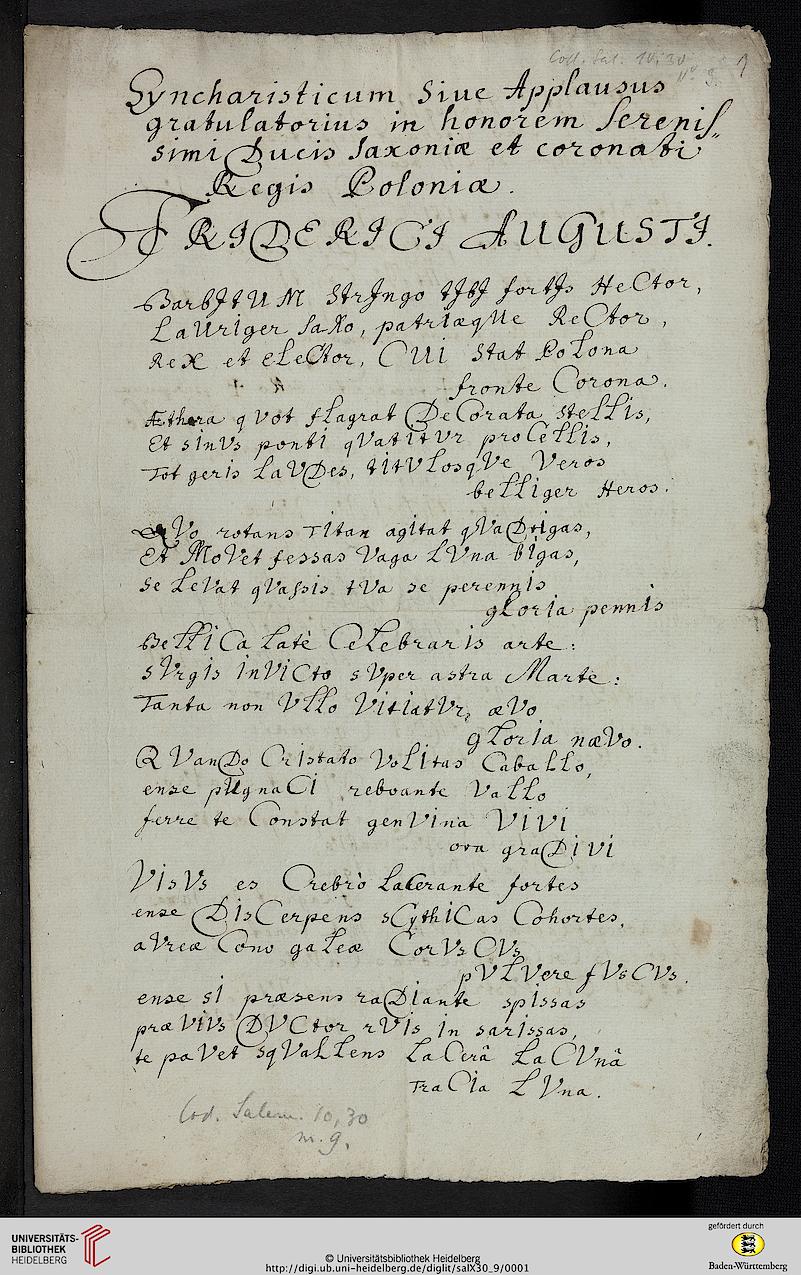 Coll. Sal. 10,30
No. 9.
1
Syncharisticum Siue Applausus
gratulatorius in honorem Serenis„
simi Ducis Saxoniæ et coronati
Regis Poloniæ.
FRIDERICI AUGUSTI.
BarbJtUM StrJngo tJbJ fortJs HeCtor,
LaUriger SaXo, patriæqUe ReCtor,
ReX et eLeCtor, CUI Stat PoLona
fronte Corona.
Æthera qVot fLagrat DeCorata SteLLis,
Et sinVs ponti qVatitVr proCeLLis,
Tot geris LaVDes, titVLosqVe Veros
beLLiger Heros.
qVo rotans Titan agitat qVaDrigas,
Et MoVet fessas Vaga LVna bigas,
Se LeVat qVassis tVa se perennis
gLoria pennis
BeLLiCa Latè CeLebraris arte:
sVrgis InVICto sVper astra Marte:
Tanta non VLLo VitiatVr, æVo
gLorIa næVo.
QVanDo CrIstato VoLItas CabaLLo,
ense pUgnaCI reboante VaLLo
ferre te Constat genVina VIVI
ora graDIVI
VIsVs es Crebrò LaCerante fortes
ense DIsCerpens sCythICas Cohortes,
aVreæ Cono gaLeæ CorVsCVs
pVLVere fVsCVs.
ense sI præsens raDiante spissas
præVIVs DVCtor rVIs in sarissas,
te paVet sqVaLLens LaCerâ LaCVnâ
TraCIa LVna.
Cod. Salem. 10,30
m. 9.
UNIVERSITÄTS-
BIBLIOTHEK
HEIDELBERG
© Universitätsbibliothek Heidelberg
http://digi.ub.uni-heidelberg.de/diglit/salX30_9/0001
gefördert durch
Baden-Württemberg